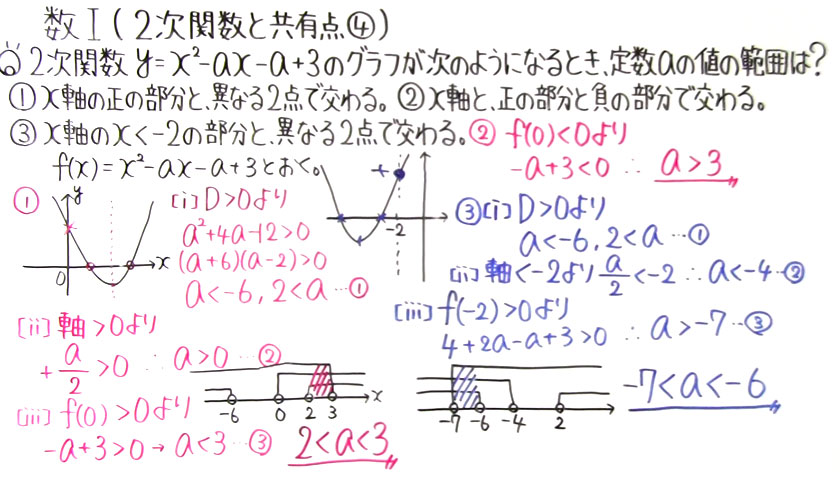 数Ⅰ(2次関数と共有点④)
Q 2次関数 y=x²-ax-a+3のグラフが次のようになるとき、定数aの値の範囲は?
①x軸の正の部分と、異なる2点で交わる。②x軸と、正の部分と負の部分で交わる。
③x軸のx<-2の部分と、異なる2点で交わる。
f(x)=x²-ax-a+3とおく。
① y
0 x
[i] D>0より
a²+4a-12>0
(a+6)(a-2)>0
a<-6, 2<a …①
[ii] 軸>0より
+a/2>0 ∴ a>0 …②
[iii] f(0)>0より
-a+3>0→a<3 …③
-6 0 2 3 x
2<a<3
② f(0)<0より
-a+3<0 ∴ a>3
+
-2
③[i] D>0より
a<-6, 2<a …①
[ii] 軸<-2より a/2<-2 ∴ a<-4 …②
[iii] f(-2)>0より
4+2a-a+3>0 ∴ a>-7 …③
-7 -6 -4 2
-7<a<-6